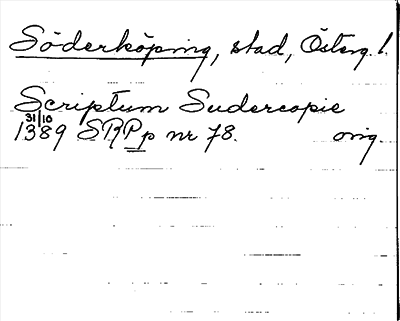 Söderköping, stad, Österg. l.
Scriptum Sudercopie
1389 31/10 SRPp nr 78. orig.